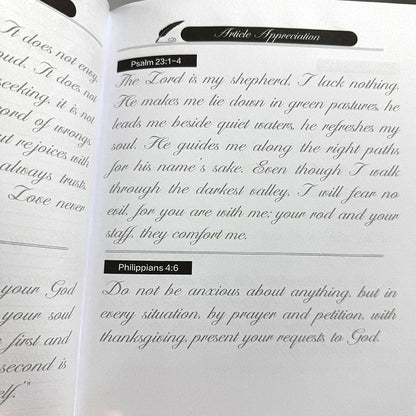 It does not envy,
oud. It does not
seeking, it is not
ord of wrongs.
ut rejoices with
always trusts,
Love never
your God
your soul
first and
second is
elf.'"
Article Appreciation
Psalm 23:1-4
The Lord is my shepherd, I lack nothing.
He makes me lie down in green pastures, he
leads me beside quiet waters, he refreshes my
soul. He guides me along the right paths
for his name's sake. Even though I walk
through the darkest valley, I will fear no
evil, for you are with me; your rod and your
staff, they comfort me.
Philippians 4:6
Do not be anxious about anything, but in
every situation, by prayer and petition, with
thanksgiving, present your requests to God.